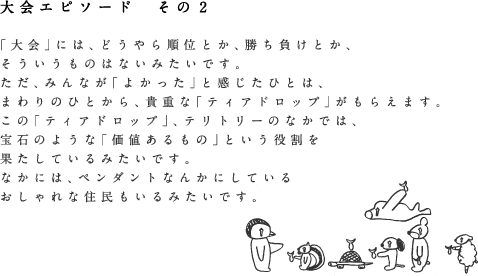 大会エピソード　その２
「大会」には、どうやら順位とか、勝ち負けとか、
そういうものはないみたいです。
ただ、みんなが「よかった」と感じたひとは、
まわりのひとから、貴重な「ティアドロップ」がもらえます。
この「ティアドロップ」、テリトリーのなかでは、
宝石のような「価値あるもの」という役割を
果たしているみたいです。
なかには、ペンダントなんかにしている
おしゃれな住民もいるみたいです。